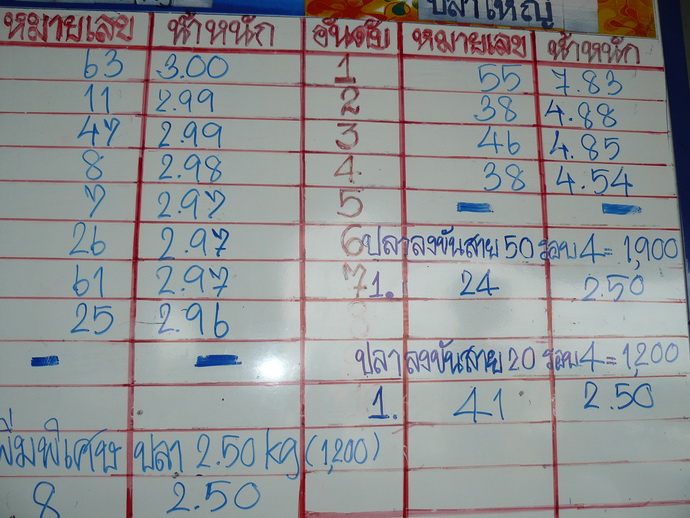 ปลาใหญ่
หมายเลข น้ำหนัก อันดับ หมายเลข น้ำหนัก
63 3.00 1 55 7.83
11 2.99 2 38 4.88
47 2.99 3 46 4.85
8 2.98 4 38 4.54
7 2.97 5 - -
26 2.97 6 ปลาลงขันสาย 50 รอบ 4 = 1,900
61 2.97 7 1. 24 2.50
25 2.96
- - ปลาลงขันสาย 20 รอบ 4 = 1,200
1. 41 2.50
พิเศษ ปลา 2.50 kg (1,200)
8 2.50